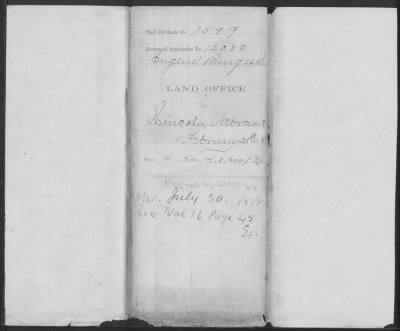 Final Certificate No. 3599
Homestead Application No. 12080
Eugene Burgess
LAND OFFICE
Lincoln Nebraska
February
Sect. 4, Town. Range
Pat. July 30. 1878.
Rec Vol 16 Page 45